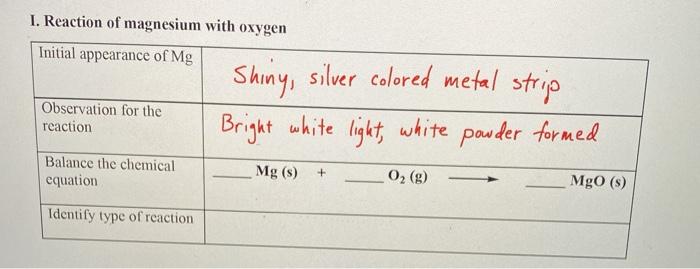 I. Reaction of magnesium with oxygen
Initial appearance of Mg
Shiny, silver colored metal strip
Observation for the
reaction
Bright white light, white powder formed
Balance the chemical
equation
___ Mg (s) + ___ O₂ (g) ⟶ ___ MgO (s)
Identify type of reaction